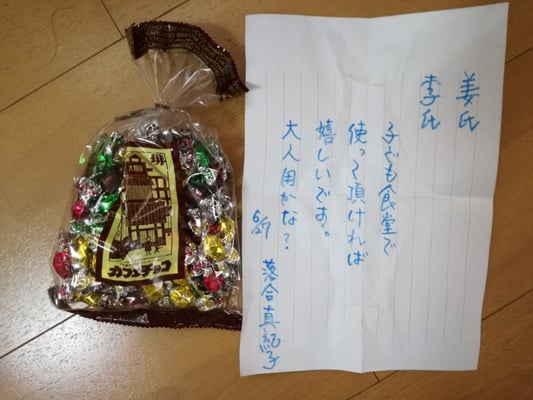 姜氏
李氏
子ども食堂で
使って頂ければ
嬉しいです。
大人用かな？
6/27 落合真紀子
珈琲
カフェチョコ